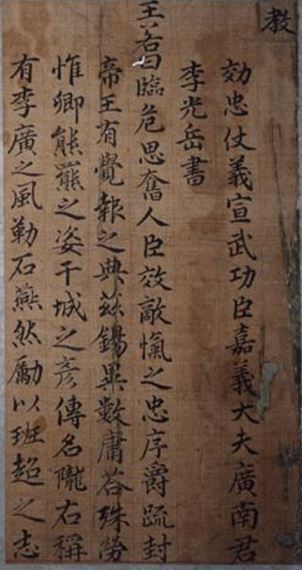 教
効忠仗義宣武功臣嘉義大夫廣南君
李光岳書
王若曰臨危思奮人臣效敵愾之忠序爵疏封
帝王有覺報之典玆錫異數庸荅殊勞
惟卿熊羆之姿干城之彦傳名隴右稱
有李廣之風勒石燕然勵以班超之志